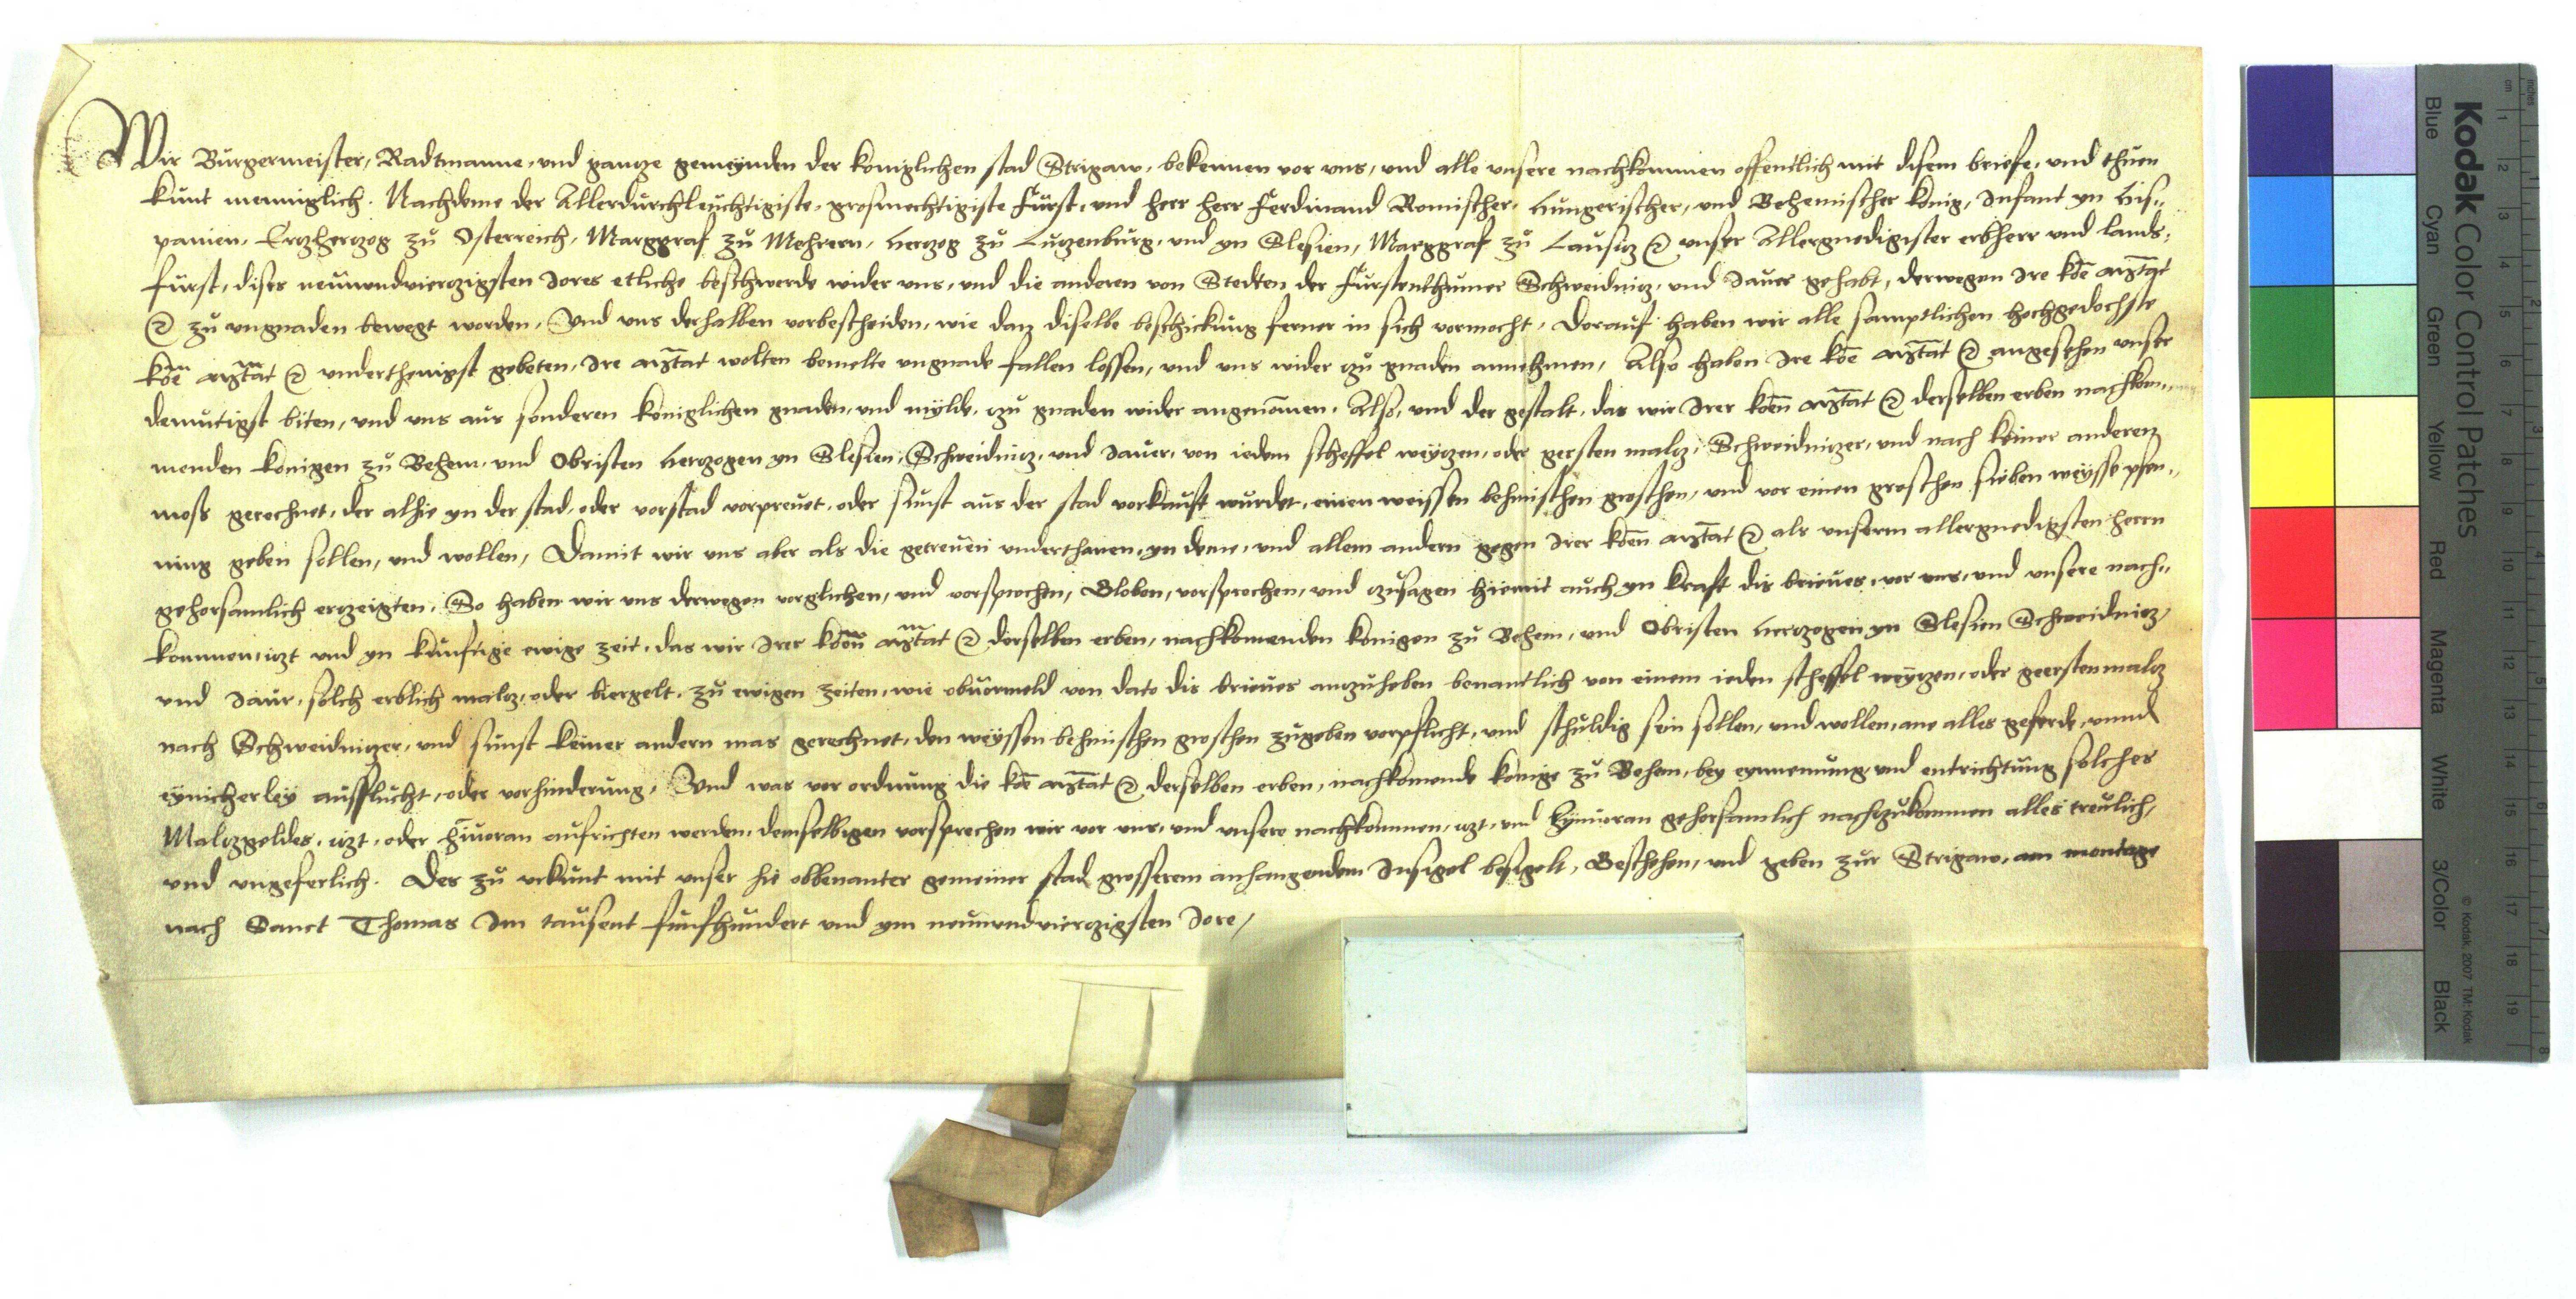 Wir Bürgermeister, Radtmanne, und gancze gemeÿnden der königlichen stad Strigaw, bekennen vor uns, und alle unsere nachkommen offentlich mit disem briefe, und thuen
kunt menniglich. Nachdeme der Allerdurchleuchtigiste, grosmechtigiste Fürst, und herr herr Ferdinand Romischer, Hungerischer, und Behemischer konig, Infant yn His„
panien, Erczherczog zu Osterreich, Marggraf zu Mehrern, Herczog zu Luczenburg, und yn Slesien, Marggraf zu Lausicz etc unser Allergnedigister erbherr und lands„
fürst, dises neunundvierczigsten Jores etliche beschwerde wider uns, und die anderen von Stedten der Fürstenthumer Schweidnicz, und Jauer gehabt, derwegen Ire koe maytat
etc zu ungnaden bewegt worden, Und uns derhalben vorbescheiden, wie dan diselbe beschickung ferner in sich vormocht, Dorauf haben wir alle samptlichen hochgedochste
koe maytat etc underthenigst gebeten, Ire maytat wolten bemelte ungnade fallen lossen, und uns wider czu gnaden annehmen, Also haben Ire koe maytat etc angesehen unser
demutigst biten, und uns aus sonderen königlichen gnaden, und mÿlde, czu gnaden wider angenommen. Also, und der gestalt, das wir Irer koen maytat etc derselben erben nachkom„
menden konigen zu Behem, und Obristen Herczogen yn Slesien, Schweidnicz, und Jauer, von iedem scheffel weÿczen, oder gersten malcz, Schweidniczer, und nach keiner anderen
moss gerechnet, der alhie yn der stad, oder vorstad vorpreuet, oder sunst aus der stad vorkauft wurdet, einen weissen behmischen groschen, und vor einen groschen sieben weÿsse pfen„
ning geben sollen, und wollen, Damit wir uns aber als die getreuen underthanen, yn deme, und allem andern gegen Irer koen maytat etc als unserm allergnedigsten herrn
gehorsamlich erczeigten, So haben wir uns derwegen vorglichen, und vorsprochen, Globen, vorsprechen, und czusagen hiemit auch yn kraft dis brieues, vor uns, und unsere nach„
kommen, iczt und yn kunftige ewige zeit, das wir Irer koen maytat etc derselben erben, nachkomenden konigen zu Behem, und Obristen Herczogen yn Slesien Schweidnicz,
und Jaur, solch erblich malcz, oder biergelt, zu ewigen zeiten, wie obuormeld von dato dis brieues anzuheben benantlich von einem ieden scheffel weÿczen, oder geerstenmalcz
nach Schweidniczer, und sunst keiner andern mas gerechnet, den weÿssen behmischen groschen zugeben vorpflicht, und schuldig sein sollen, und wollen, ane alles geferde, unnd
eÿnicherleÿ ausflucht, oder vorhinderung, Und was vor ordnung die koe maytat etc derselben erben, nachkomende konige zu Behem, bey eynnemung und entrichtung solches
Malczgeldes, iczt, oder hinuoran aufrichten werden, demselbigen vorsprechen wir vor uns, und unsere nachkommen, iczt, und hinuoran gehorsamlich nachczukommen alles treulich,
und ungeferlich. Des zu urkunt mit unser hie obbenanter gemeiner stad grosserem anhangendem Insigel besigelt, Geschehen, und geben zur Strigaw, am montage
nach Sanct Thomas Im tausent funfhundert und ym neunundvierczigsten Jore,
Kodak Color Control Patches
Blue Cyan Green Yellow Red Magenta White 3/Color Black
© Kodak, 2007 TM: Kodak
cm 1 2 3 4 5 6 7 8 9 10 11 12 13 14 15 16 17 18 19
inches 1 2 3 4 5 6 7 8